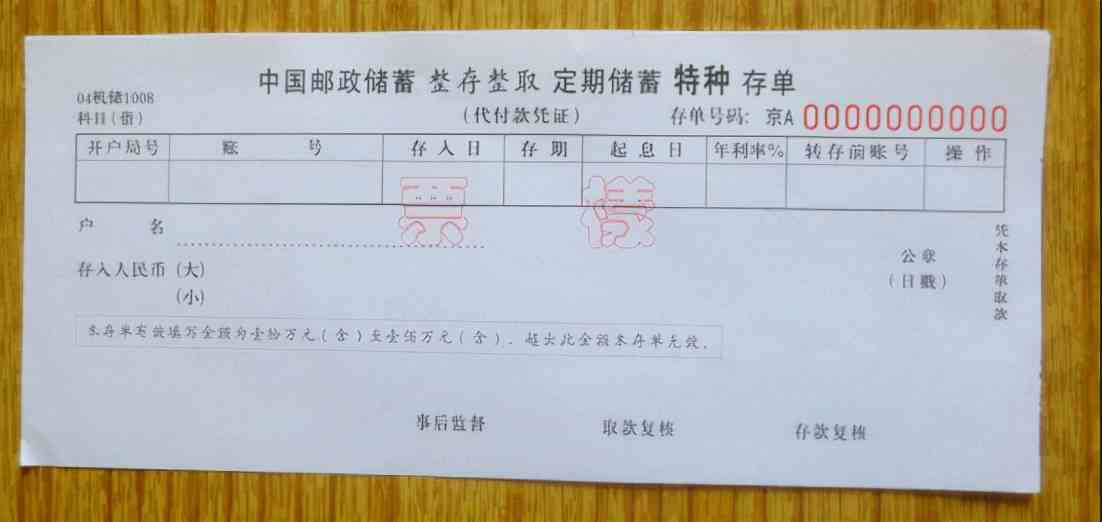 中国邮政储蓄 整存整取 定期储蓄 特种 存单
04机储1008
科目(借)
(代付款凭证)
存单号码: 京A 0000000000
开户局号 账 号 存入日 存期 起息日 年利率% 转存前账号 操作
票 样
户 名
存入人民币 (大)
(小)
公章
(日戳)
凭本存单取款
本存单有效填写金额为壹拾万元(含)至壹佰万元(含)。超出此金额本存单无效。
事后监督 取款复核 存款复核